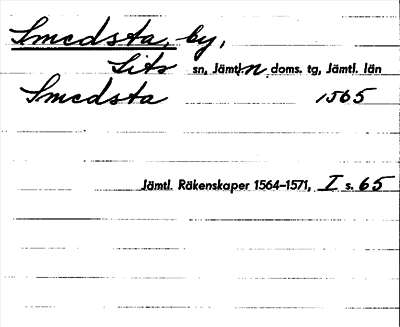 Smedsta, by,
Lits sn, Jämtl. n. doms. tg, Jämtl. län
Smedsta 1565
Jämtl. Räkenskaper 1564–1571, I s. 65